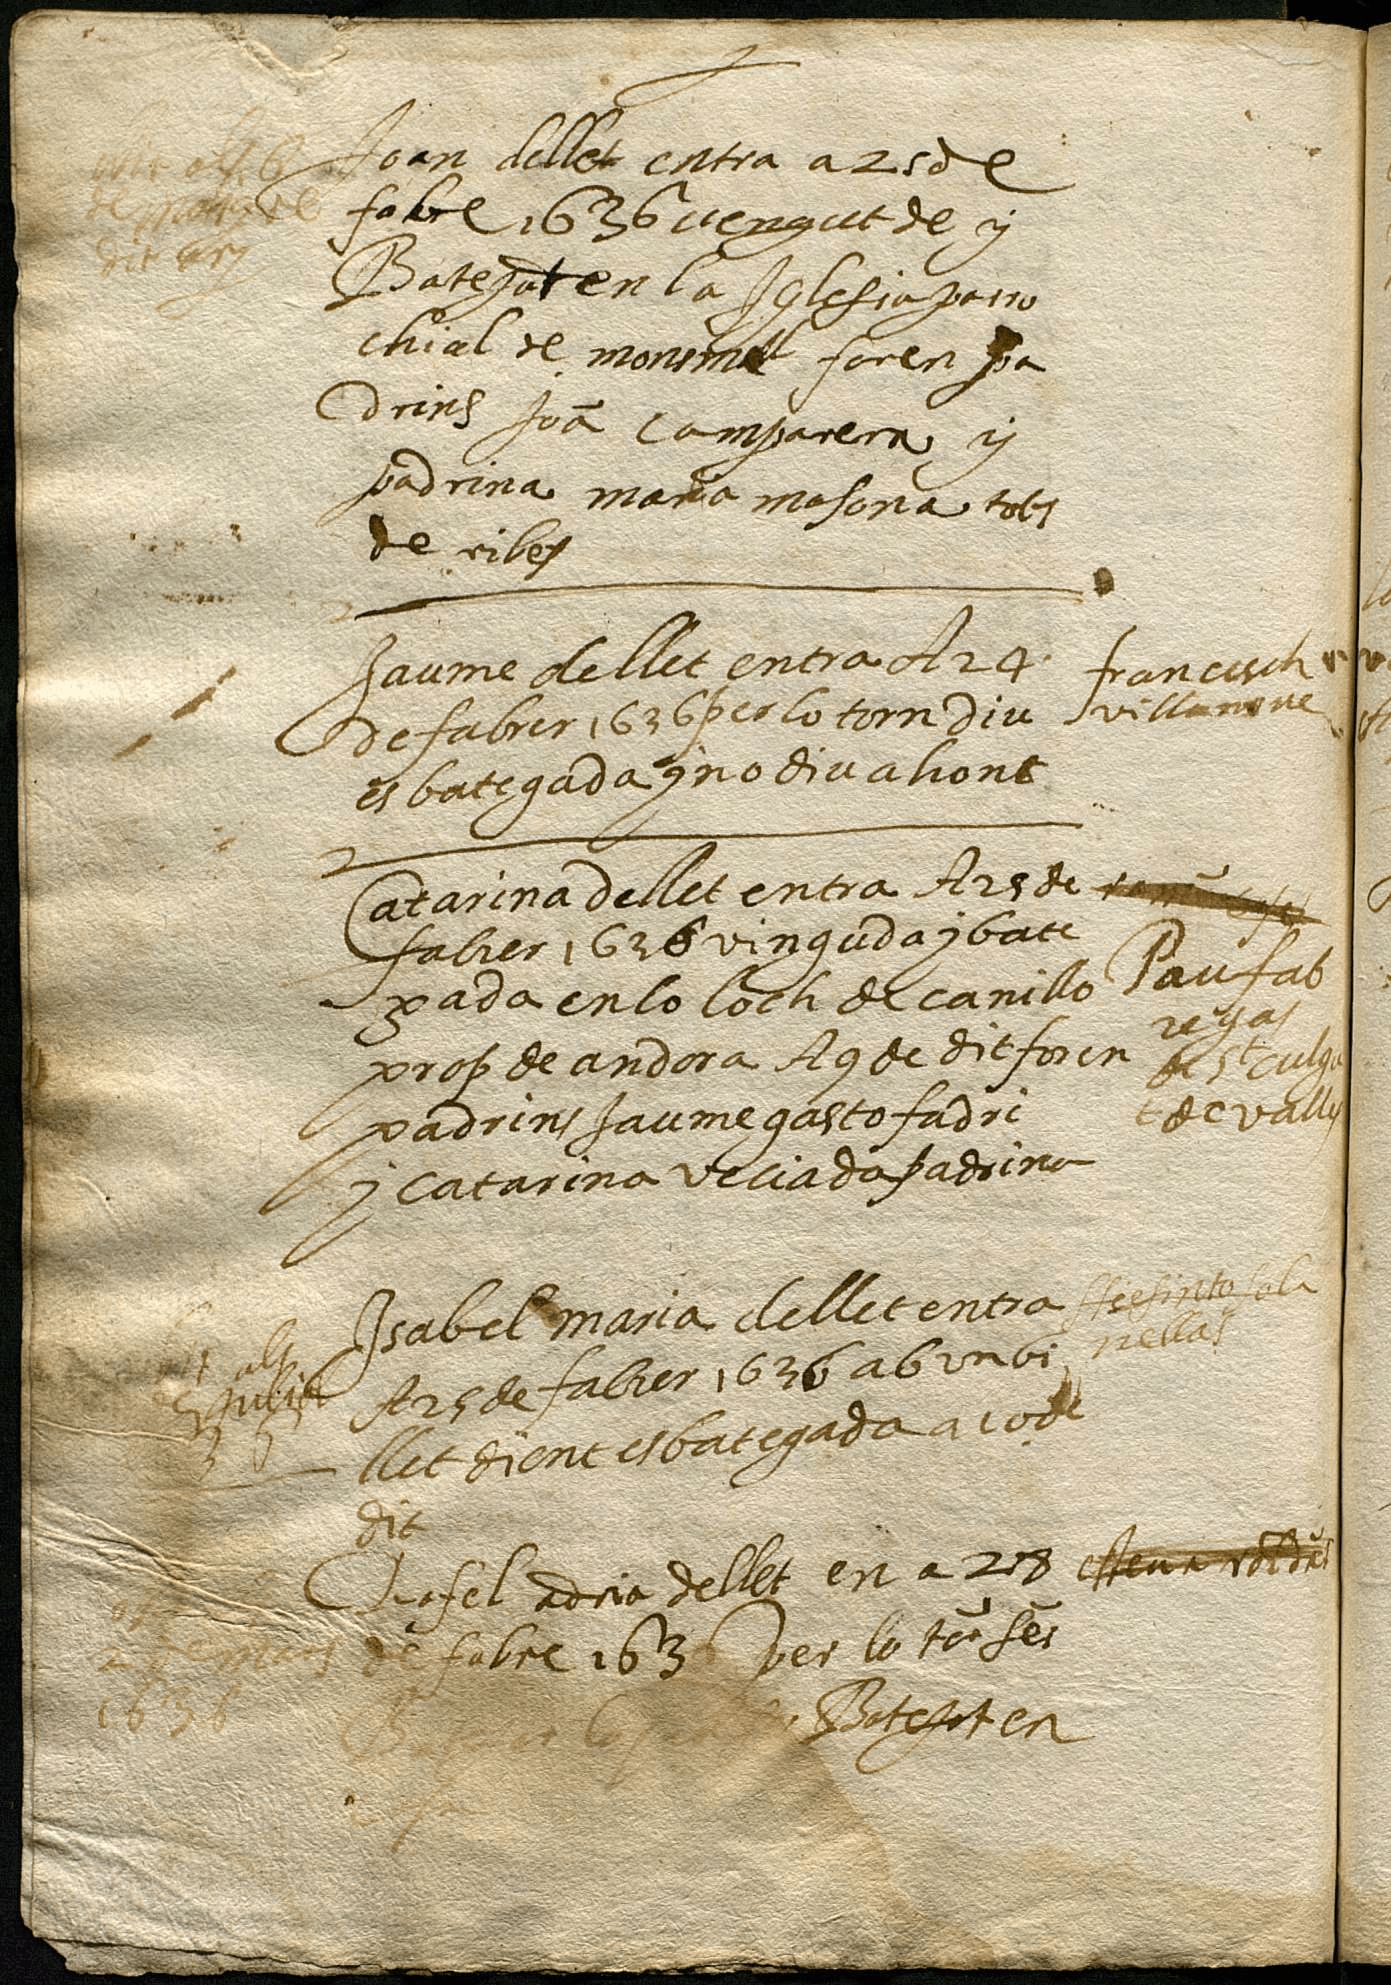 Joan dellet entra a 25 de
fabre 1636 vengut de y
Batejat en la Iglesia parro
chial de monmell foren pa
drins Joã comparera y
padrina maria masona tots
de ribes
Jaume dellet entra A 24
de fabrer 1636 per lo torn diu
es bategada y no diu ahont
francisch
villanove
Catarina dellet entra A 25 de
fabrer 1636 vinguda y bate
gada en lo loch de canillo
prop de andora A 9 de dit foren
padrins Jaume gasto fadri
y catarina veciada padrina
Pau fab
regas
de St culga
t de valles
Isabel maria dellet entra
A 25 de fabrer 1636 ab un bi
llet dient es bategada a 10 de
dit
Hiesinto sola
nellas
als
5 Juliol
36
Rafel adria dellet en a 28
de fabre 1636 per lo tor ses
Batejat en
esteva roldas
2 de mars
1636